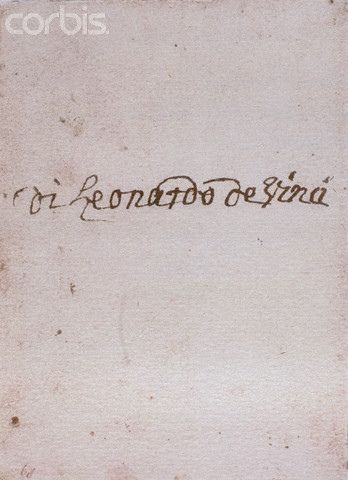 corbis.
di Leonardo de Vinci